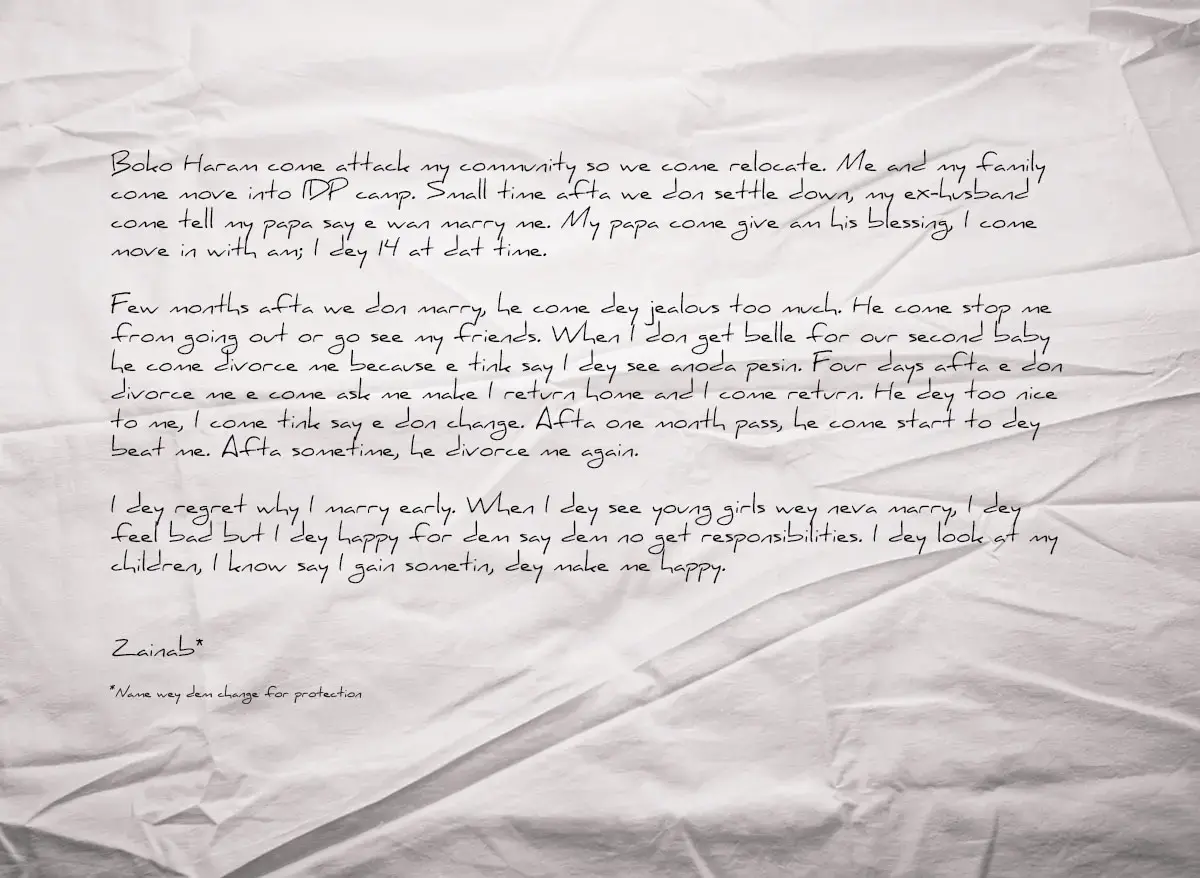 Boko Haram come attack my community so we come relocate. Me and my family
come move into IDP camp. Small time afta we don settle down, my ex-husband
come tell my papa say e wan marry me. My papa come give am his blessing, I come
move in with am; I dey 14 at dat time.
Few months afta we don marry, he come dey jealous too much. He come stop me
from going out or go see my friends. When I don get belle for our second baby
he come divorce me because e tink say I dey see anoda pesin. Four days afta e don
divorce me e come ask me make I return home and I come return. He dey too nice
to me, I come tink say e don change. Afta one month pass, he come start to dey
beat me. Afta sometime, he divorce me again.
I dey regret why I marry early. When I dey see young girls wey neva marry, I dey
feel bad but I dey happy for dem say dem no get responsibilities. I dey look at my
children, I know say I gain sometin, dey make me happy.
Zainab*
*Name wey dem change for protection